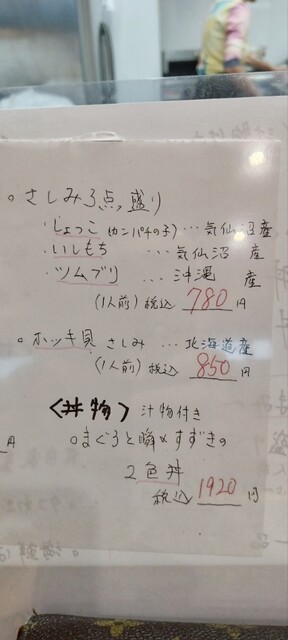 。さしみ3点盛り
・しょっこ(カンパチの子)…気仙沼産
・いしもち …気仙沼 産
・ツムブリ …沖縄 産
(1人前)税込 780円
。ホッキ貝 さしみ …北海道産
(1人前)税込 850円
<丼物> 汁物付き
。まぐろと瞬〆すずきの
2色丼
税込 1920円
円